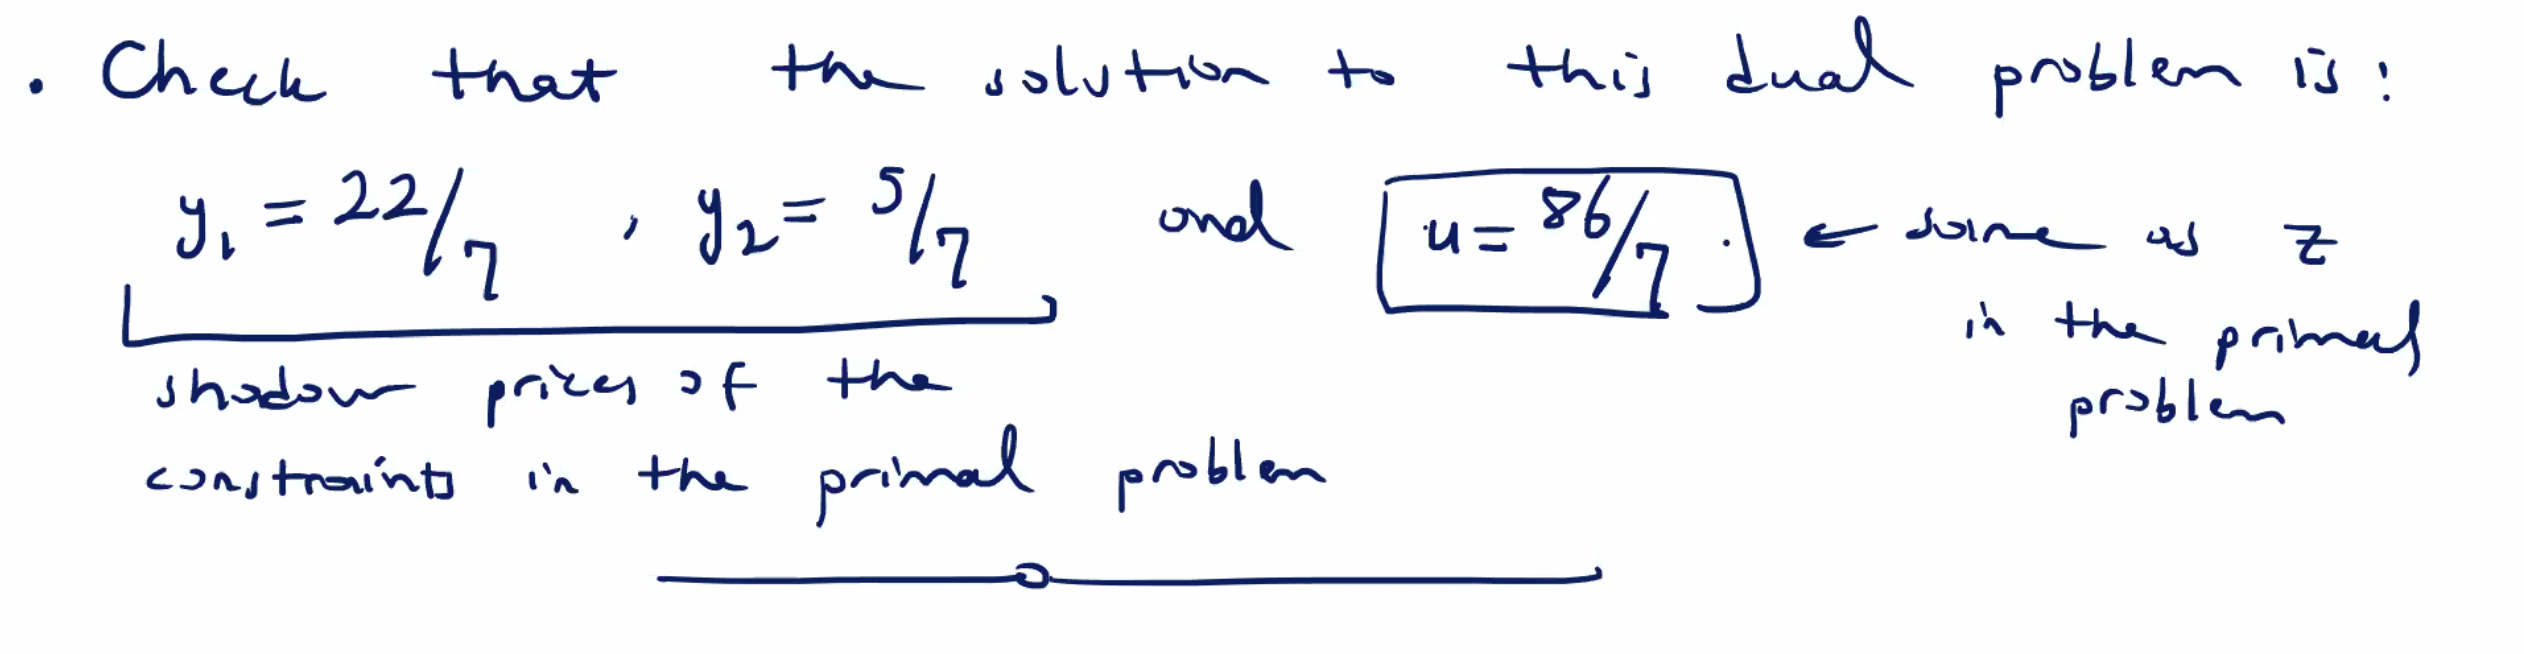 . Check that the solution to this dual problem is:
y₁ = 22/7 , y₂ = 5/7 and u = 86/7 . ← same as z
in the primal
problem
shadow prices of the
constraints in the primal problem